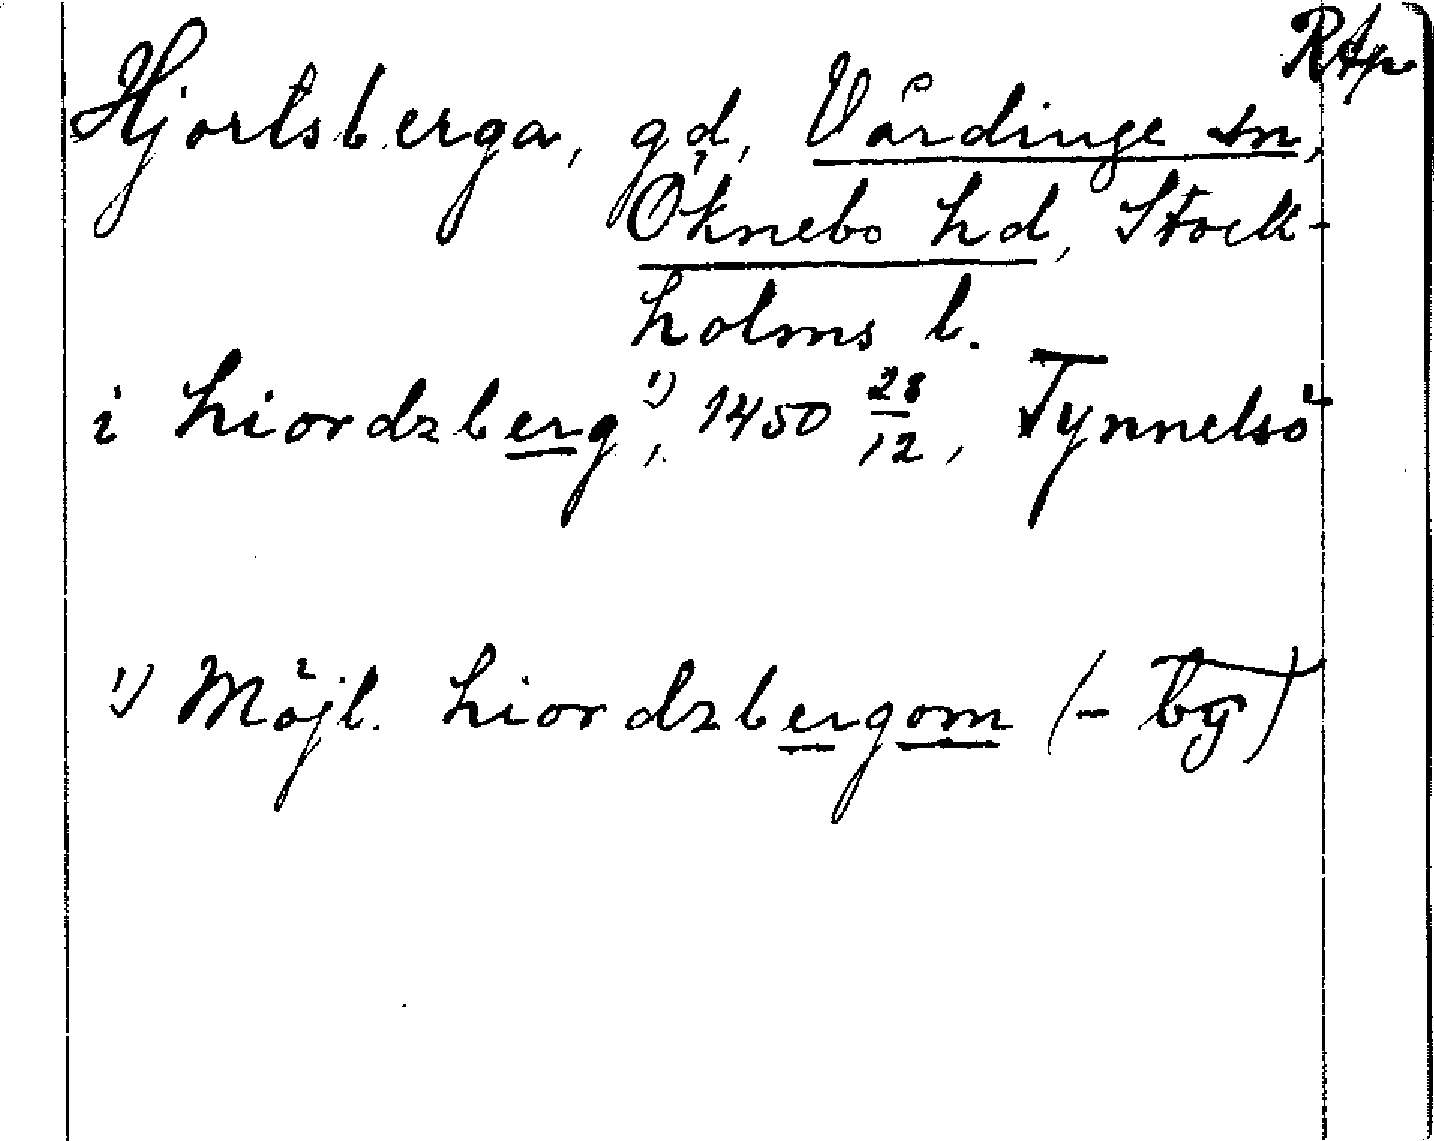 RAp
Hjortsberga, gd, Vårdinge sn,
Öknebo hd, Stock-
holms l.
i hiordzberg¹⁾, 1450 28/12, Tynnelsö
¹⁾ Möjl. hiordzbergom (- bg)